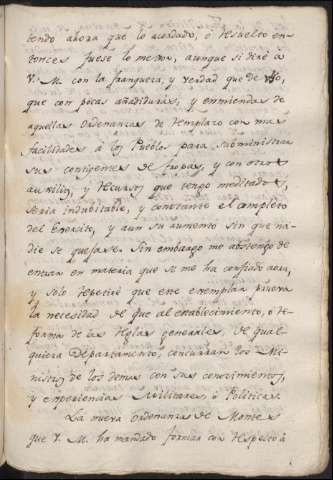 tendo ahora que lo acordado, ó resuelto en-
tonces fuese lo mejor, aunque si diré à
V. M. con la franqueza, y verdad que devo,
que con pocas añadiduras, y enmiendas de
aquellas ordenanzas de Remplazo con mas
facilidades à los Pueblos para subministrar
sus contigentes de tropas, y con otros
auxilios, y recursos que tengo meditados,
seria indubitable, y constante el completo
del Exercito, y aun su aumento sin que na-
die se quejase. Sin embargo me abstengo de
entrar en materia que se me ha confiado aora,
y solo repetiré que este exemplar prueva
la necesidad de que al establecimiento, ó re-
forma de las Reglas generales de qual-
quiera Departamento, concurran los Mi-
nistros de los demas con sus conocimientos,
y experiencias Militares, ó Politicas.
La nueva ordenanza de Montes
que V. M. ha mandado formar con respecto à